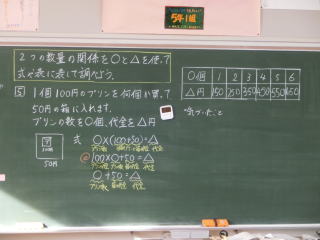 5年1組
2つの数量の関係を○と△を使って
式や表に表して調べよう。
⑤ 1個100円のプリンを何個か買って
50円の箱に入れます。
プリンの数を○個、代金を△円
50円
式 ○×(100+50)=△
100×○+50=△
○+50=△
○個 1 2 3 4 5 6
△円 150 250 350 450 550 650
*気づいたこと